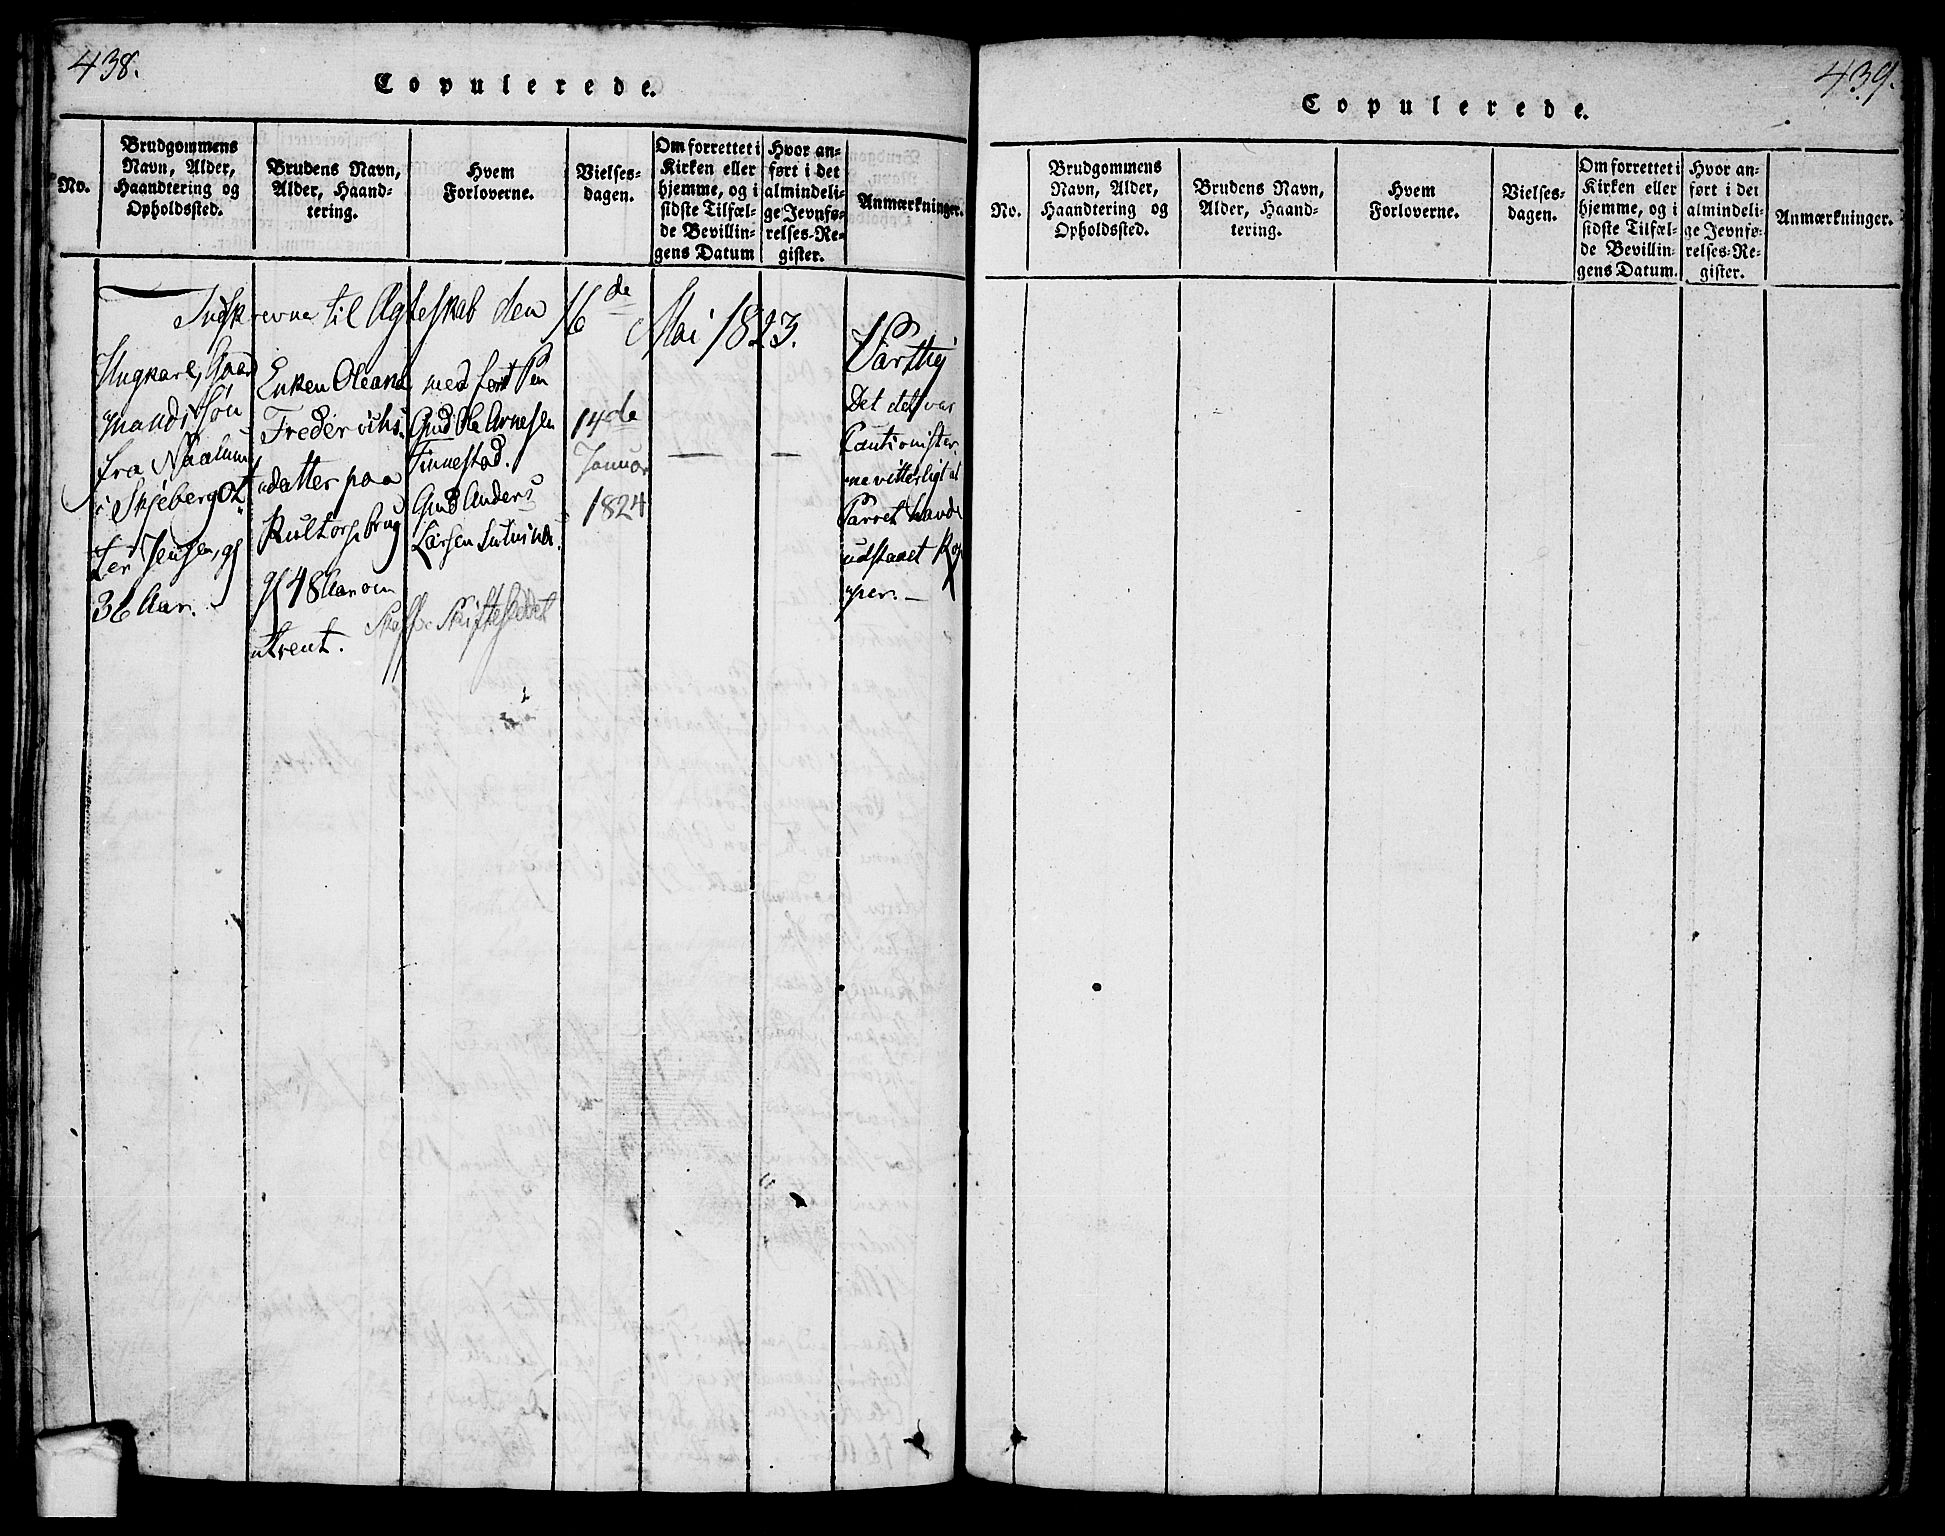 438.
Copulerede.
No.
Brudgommens
Navn, Alder,
Haandtering og
Opholdssted.
Brudens Navn,
Alder, Haand-
tering.
Hvem
Forloverne.
Vielses-
dagen.
Om forrettet i
Kirken eller
hjemme, og i
sidste Tilfæl-
de Bevillin-
gens Datum
Hvor an-
ført i det
almindeli-
ge Jevnfø-
relses-Re-
gister.
Anmærkninger.
Indskrevne til Ægteskab den 16de Mai 1823.
Ungkarl, Gaard
mands Søn
fra
i Skjeberg
Jensen, gl
36 Aar.
Enken Oleana
Frederichs
datter paa
gl 48 Aar om
trent.
Gmd Ole Arnesen
Finnestad.
Gmd Anders
Larsen
14de
Januar
1824
—
—
Det det var
Cautionister
ne vitterligt at
Parret havde
udstaaet Kop
per. —
439.
Copulerede.
No.
Brudgommens
Navn, Alder,
Haandtering og
Opholdssted.
Brudens Navn,
Alder, Haand-
tering.
Hvem
Forloverne.
Vielses-
dagen.
Om forrettet i
Kirken eller
hjemme, og i
sidste Tilfæl-
de Bevillin-
gens Datum.
Hvor an-
ført i det
almindeli-
ge Jevnfø-
relses-Re-
gister.
Anmærkninger.